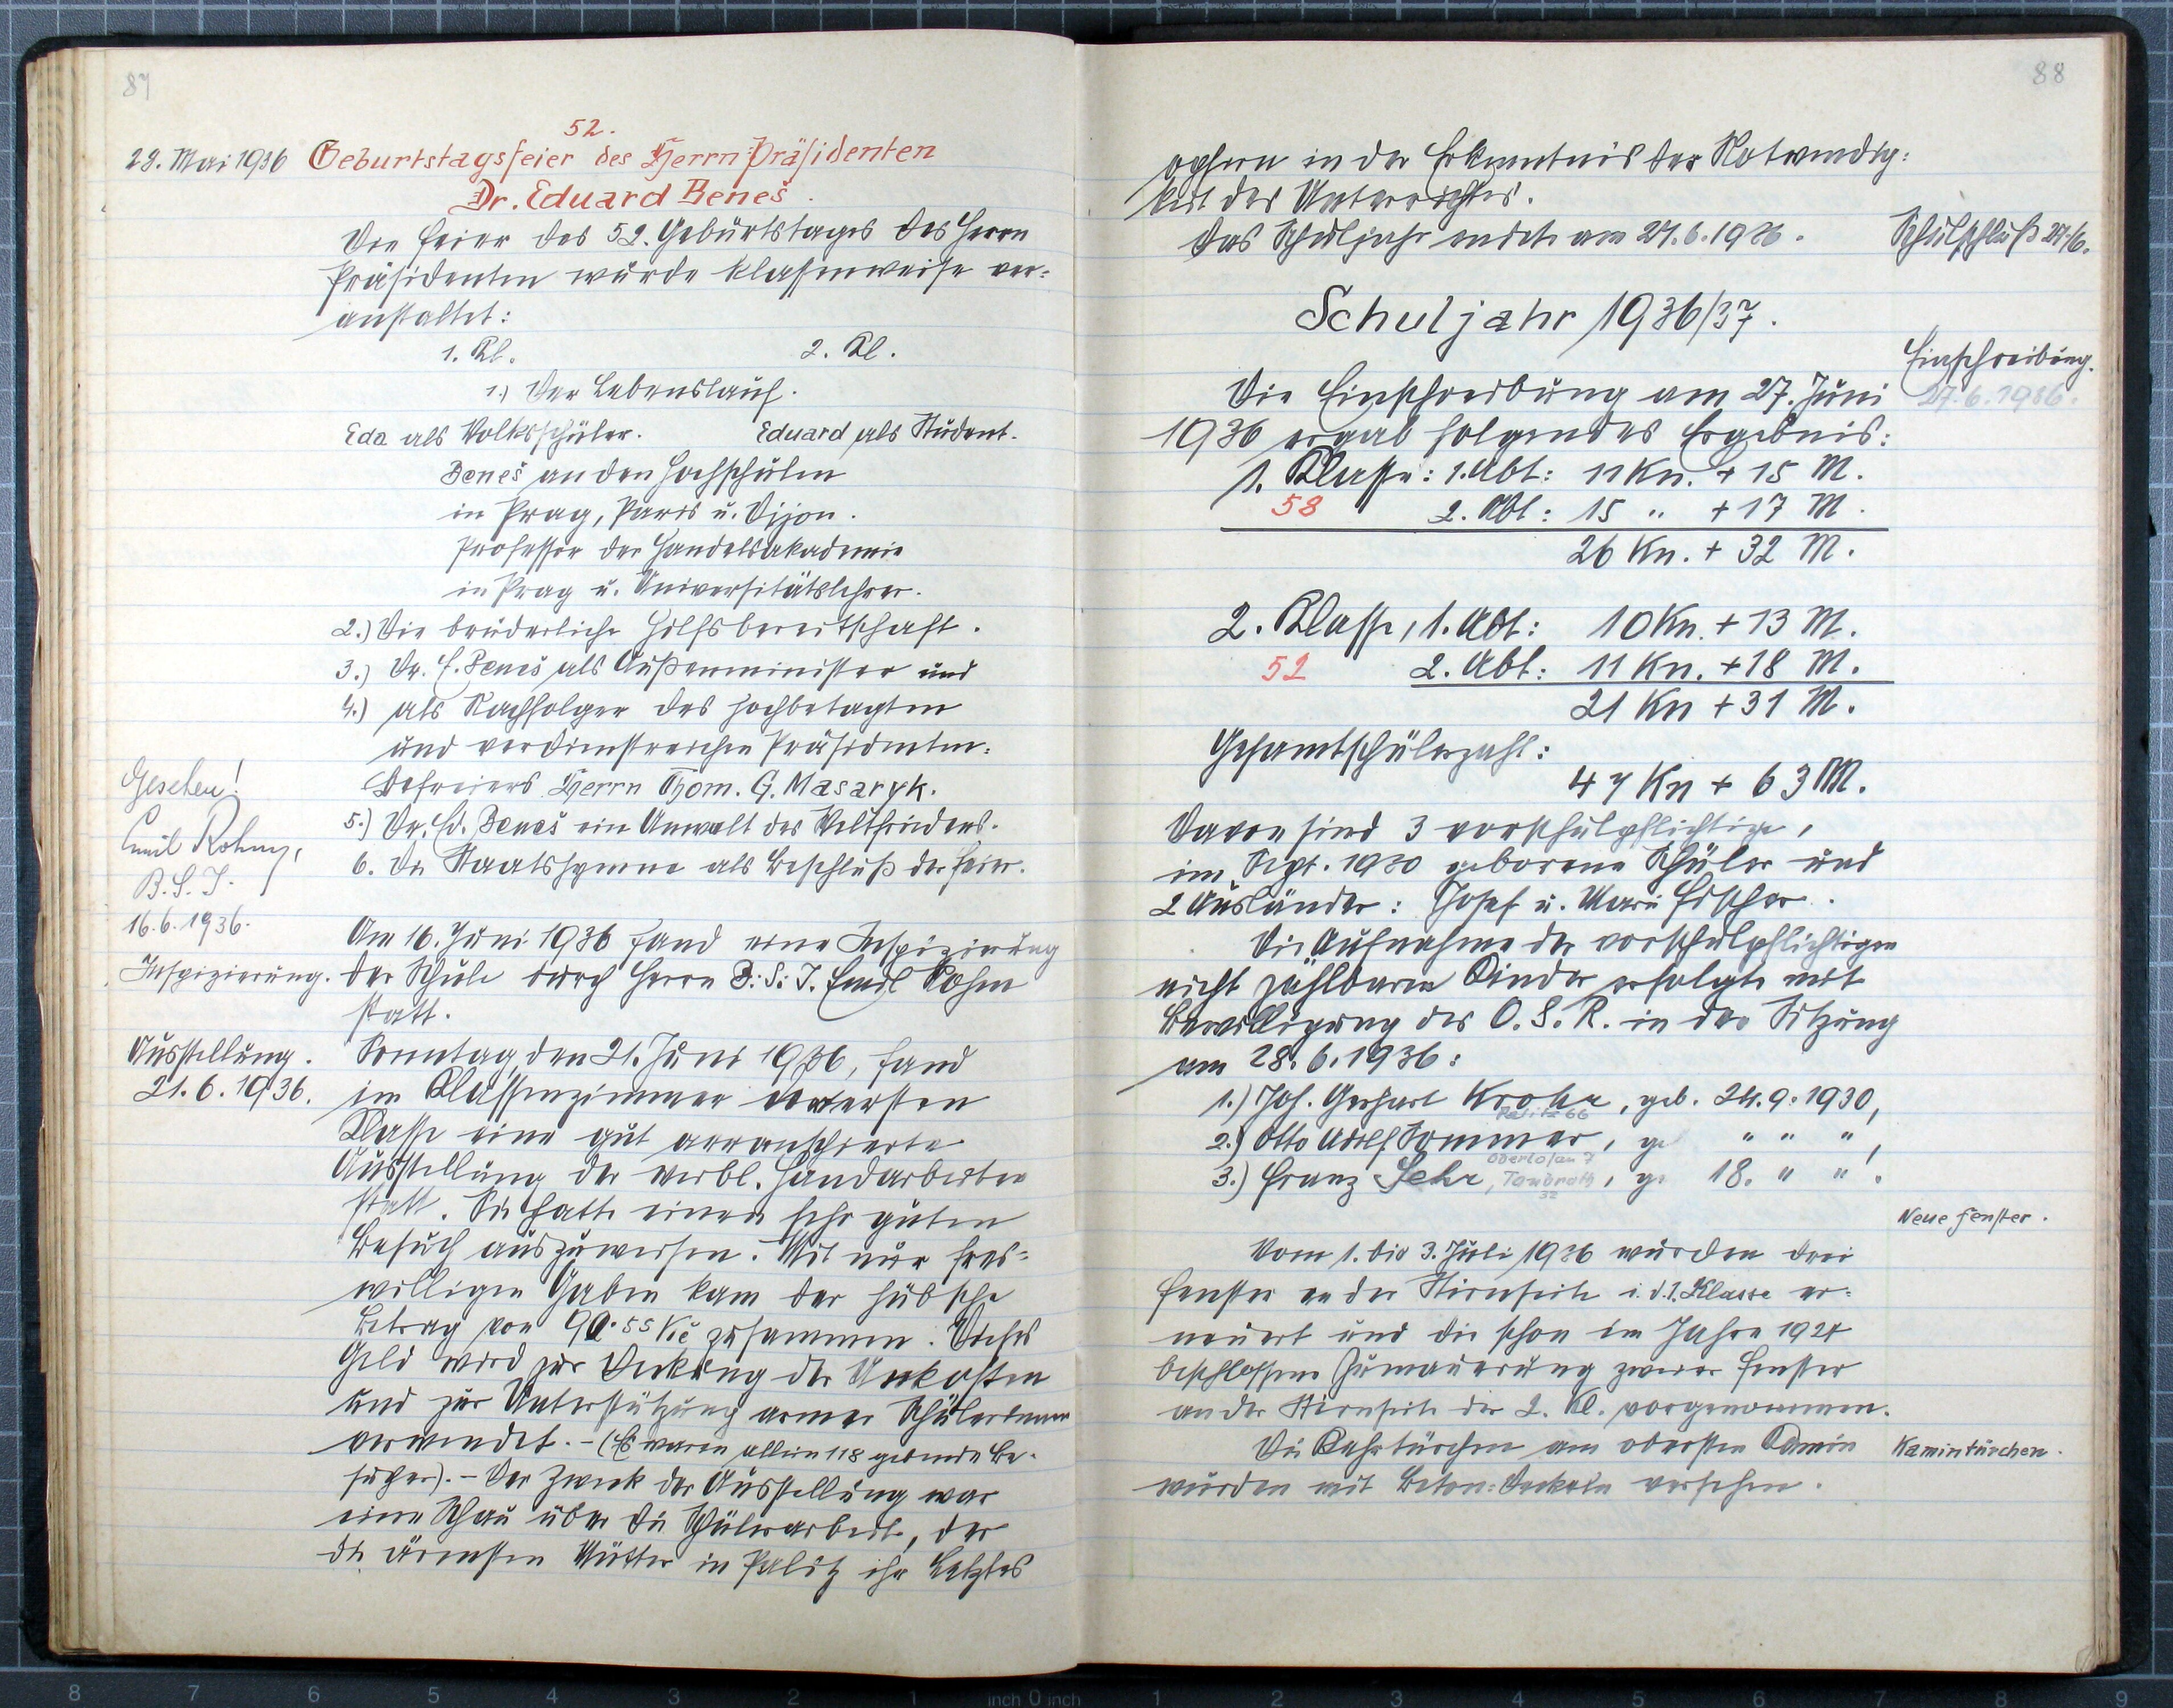 87
52.
28. Mai 1936 Geburtstagsfeier des Herrn Präsidenten
Dr. Eduard Beneš.
Die Feier des 52. Geburtstages des Herrn
Präsidenten wurde klassenweise ver=
anstaltet:
1. Kl. 2. Kl.
1.) Der Lebenslauf.
Eda als Volksschüler. Eduard als Student.
Beneš an den Hochschulen
in Prag, Paris u. Dijon.
Professor der Handelsakademie
in Prag u. Universitätslehrer.
2.) Die brüderliche Hilfsbereitschaft.
3.) Dr. E. Beneš als Außenminister und
4.) als Nachfolger des hochbetagten
und verdienstreichen Präsidenten=
Befreiers Herrn Thom. G. Masaryk.
5.) Dr. Ed. Beneš ein Anwalt des Weltfriedens.
6. Die Staatshymne als Beschluß der Feier.
Gesehen!
Emil Rohm,
B.S.I.
16.6.1936.
Am 16. Juni 1936 fand eine Inspizierung
Inspizierung. der Schule durch Herrn B.S.I. Emil Rohm
statt.
Ausstellung. Sonntag, den 21. Juni 1936, fand
21.6.1936. im Klassenzimmer der ersten
Klasse eine gut arrangierte
Ausstellung der weibl. Handarbeiten
statt. Sie hatte einen sehr guten
Besuch auszuweisen. Mit nur frei=
willigen Gaben kam der hübsche
Betrag von 90·55 Kč zusammen. Dieses
Geld wird zur Deckung der Unkosten
und zur Unterstützung armer Schülerinnen
verwendet. – (Es waren allein 118 gebende Be=
sucher). – Der Zweck der Ausstellung war
eine Schau über die Schülerarbeit, der
die ärmsten Mütter in Palitz ihr Letztes
88
opfern in der Erkenntnis der Notwendig=
keit des Unterrichtes.
Das Schuljahr endete am 27.6.1936. Schulschluß 27./6.
Schuljahr 1936/37.
Einschreibung.
27.6.1936.
Die Einschreibung am 27. Juni
1936 ergab folgendes Ergebnis:
1. Klasse: 1. Abt: 11 Kn. + 15 M.
58 2. Abt: 15 " + 17 M.
26 Kn. + 32 M.
2. Klasse, 1. Abt: 10 Kn. + 13 M.
52 2. Abt: 11 Kn. + 18 M.
21 Kn + 31 M.
Gesamtschülerzahl:
47 Kn + 63 M.
Davon sind 3 vorschulpflichtige,
im Sept. 1930 geborene Schüler und
2 Ausländer: Josef u. Marie Fischer.
Die Aufnahme der vorschulpflichtigen
nicht zählbaren Kinder erfolgte mit
Bewilligung des O.S.R. in der Sitzung
am 28.6.1936:
1.) Joh. Gerhart Kroha, geb. 24.9.1930,
Palitz 66
2.) Otto Adolf Sommer, ge " " ",
Oberlosau 7
3.) Franz Sehr, Taubrath, ge 18. " ".
32
Neue Fenster.
Vom 1. bis 3. Juli 1936 wurden drei
Fenster an der Stirnseite i. d. 1. Klasse er=
neuert und die schon im Jahre 1924
beschlossene Zumauerung zweier Fenster
an der Stirnseite der 2. Kl. vorgenommen.
Die Kehrtürchen am obersten Kamin Kamintürchen.
wurden mit Beton=Deckeln versehen.
8 7 6 5 4 3 2 1 inch 0 inch 1 2 3 4 5 6 7 8 9